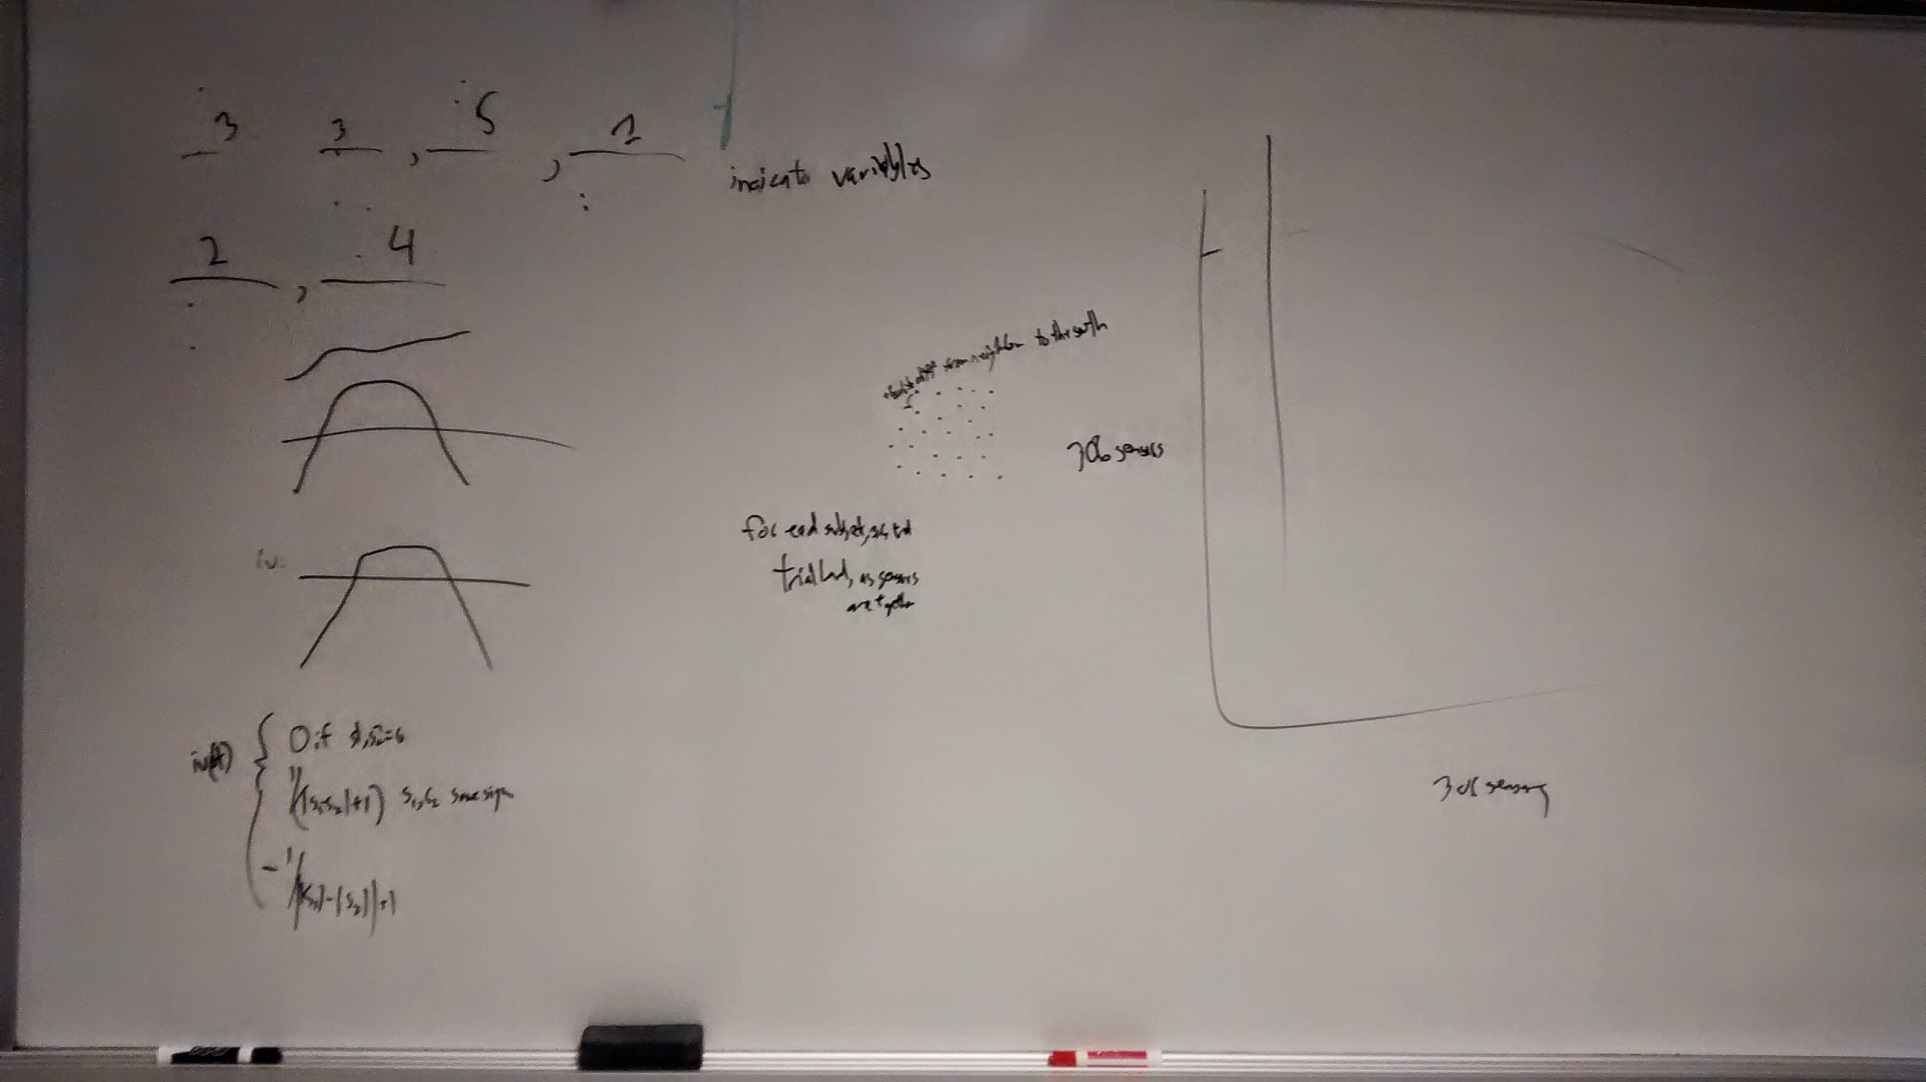 3 3 , 5 , 1
indicato variables
2 , 4
from neighbor to the south
306 sensors
for each subject,
trial
are together
iv:
iv(t) { 0 if s1,s2=0
1/(|s1-s2|+1) s1,s2 same sign
-1/||s1|-|s2||+1
306 sensors